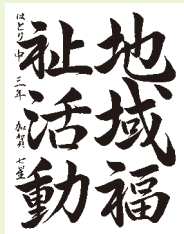 地域福
祉活動
はとり中 三年 加賀 七星